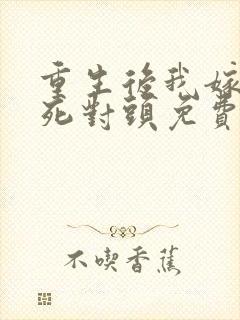 重生後我嫁
死對頭免費
不喫香蕉